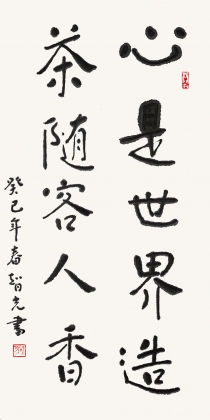 心是世界造
茶随客人香
癸巳年春智光書